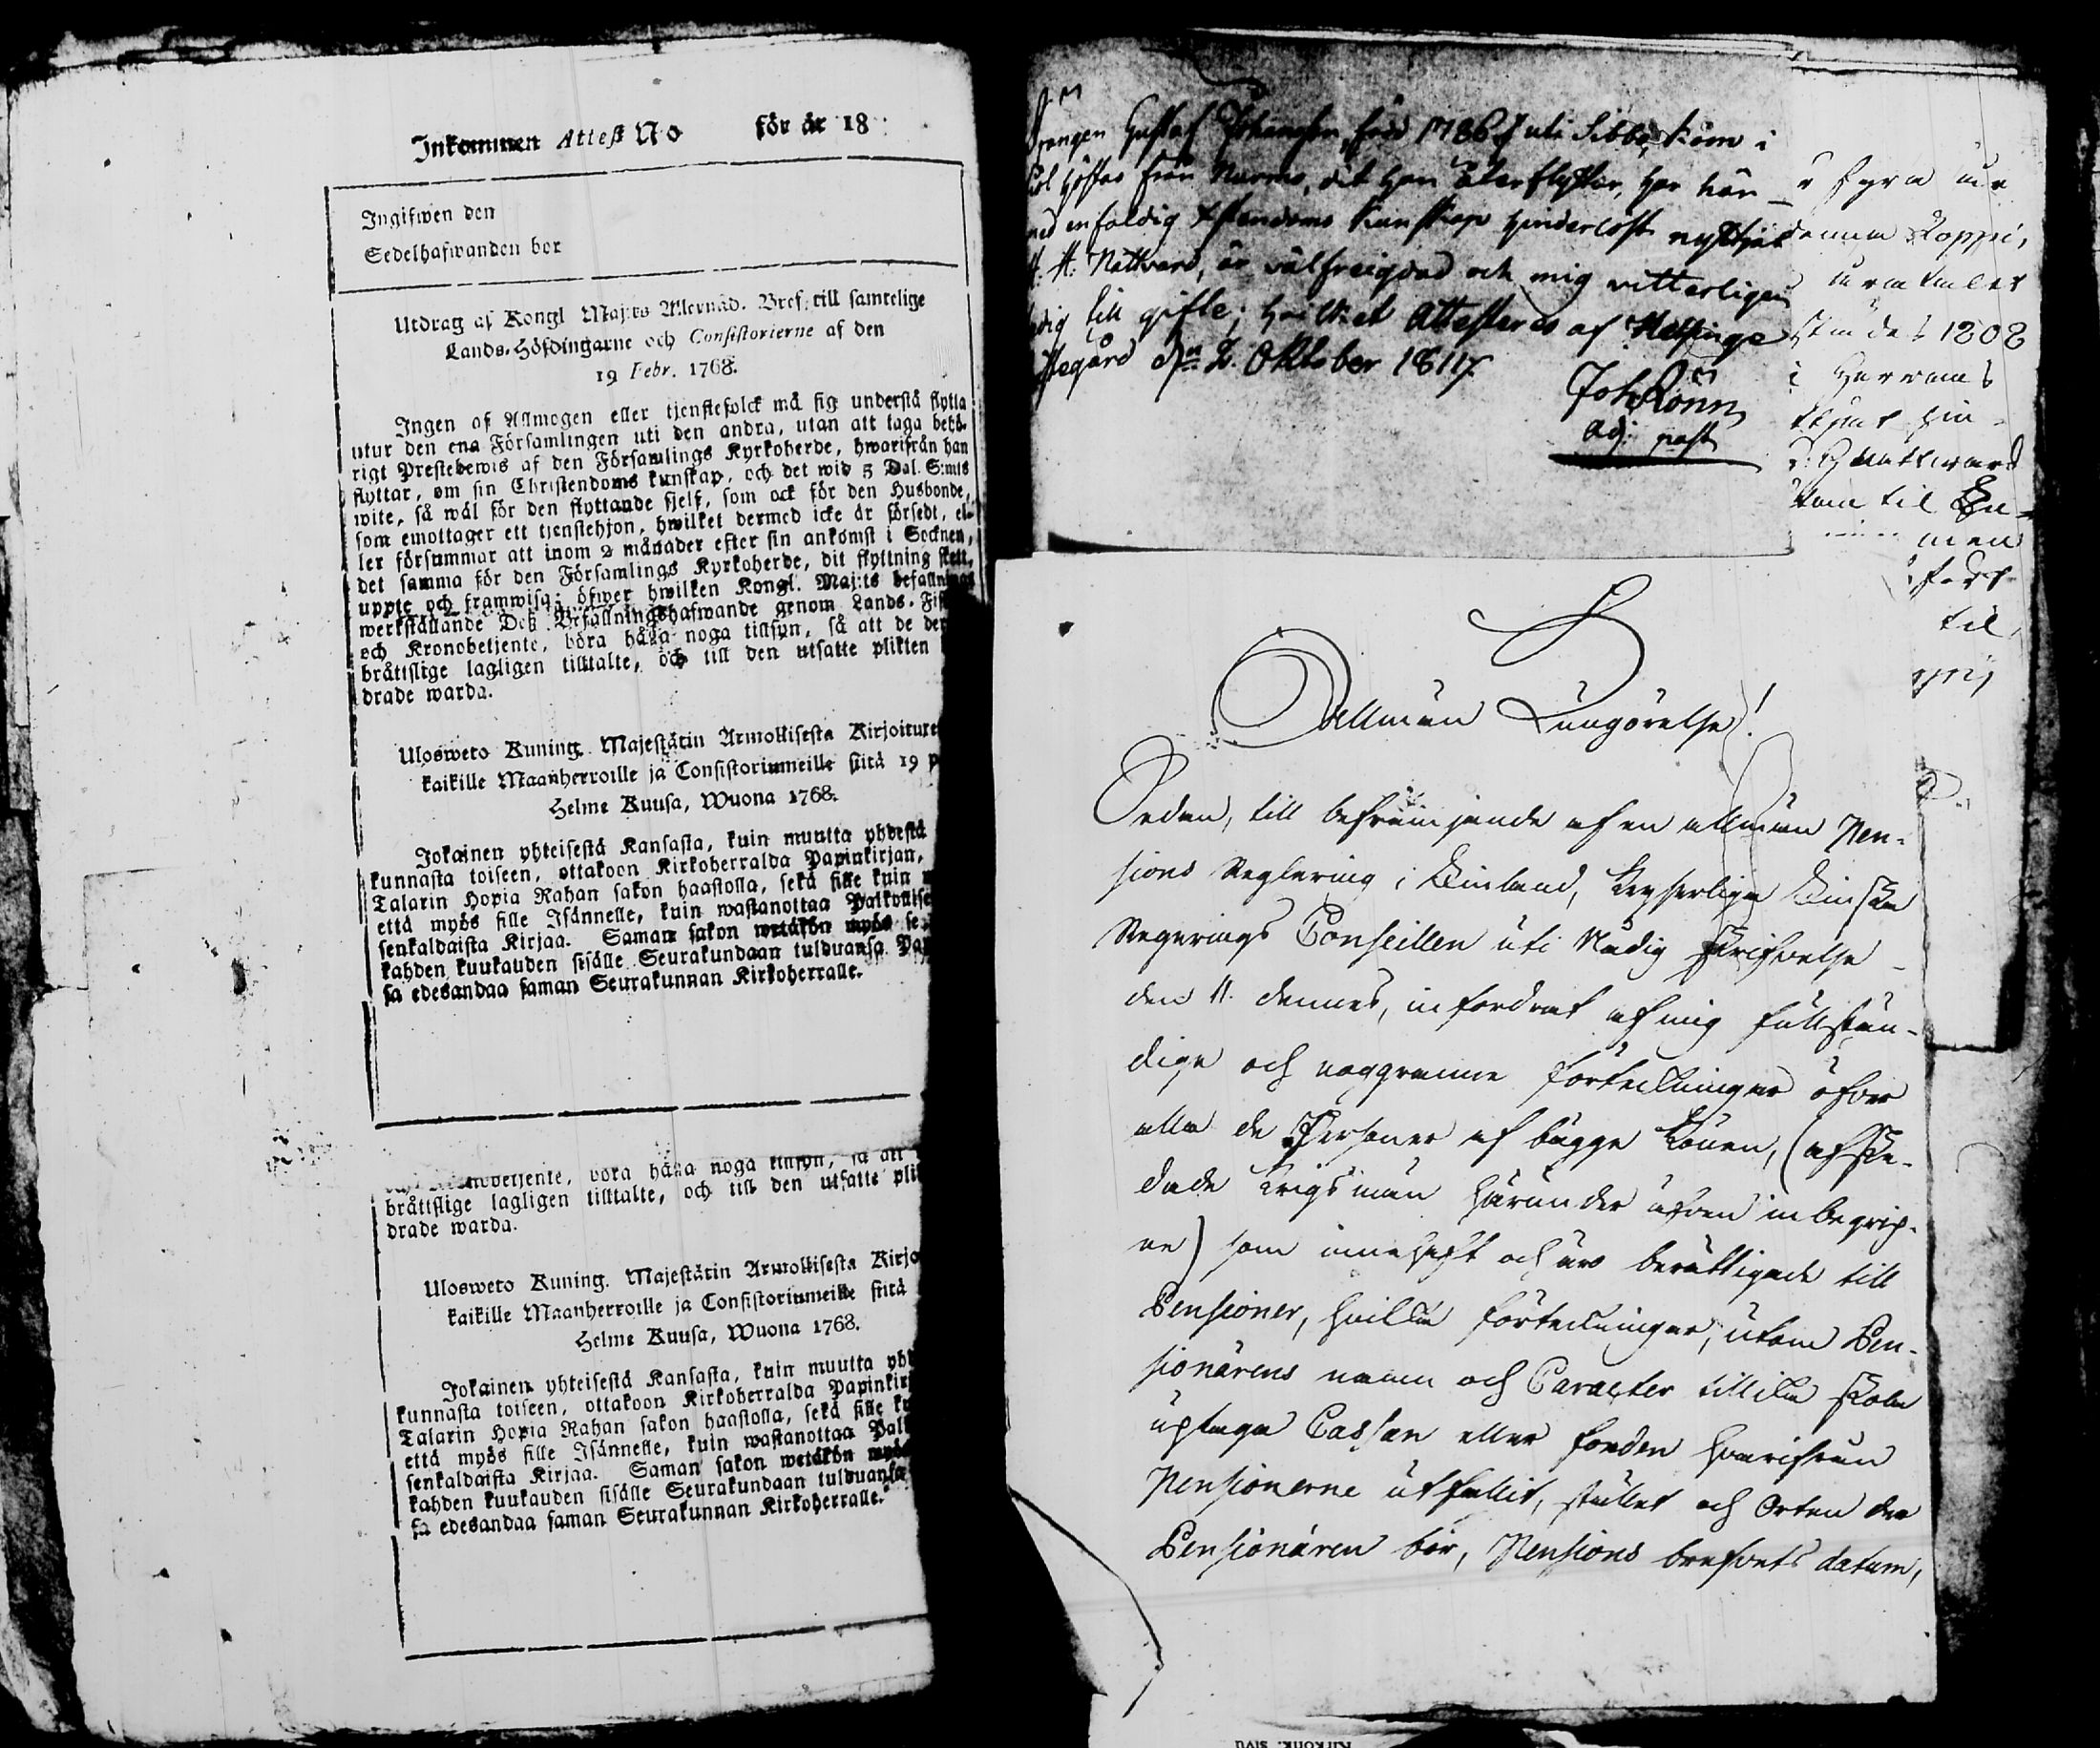 Inkommen Attest No för år 18
Ingifwen den
Sedelhafwanden bor
Utdrag af Kongl Maj:ts Allernåd. Bref, till samtelige
Lands-Höfdingarne och Consistorierne af den
19 Febr. 1768.
Ingen af Allmogen eller tjenstefolck må sig understå flytta
utur den ena Församlingen uti den andra, utan att taga behö-
rigt Prestebewis af den Församlings Kyrkoherde, hwarifrån han
flyttar, om sin Christendoms kunskap, och det wid 5 Dal. S:mts
wite, så wäl för den flyttande sjelf, som ock för den Husbonde,
som emottager ett tjenstehjon, hwilket dermed icke är försedt, el-
ler försummar att inom 2 månader efter sin ankomst i Socknen,
det samma för den Församlings Kyrkoherde, dit flyttning skett,
uppte och framwisa; öfwer hwilken Kongl. Maj:ts befallnings
werkställande Deß Befallningshafwande genom Lands-Fis
och Kronobetjente, böra hålla noga tillsyn, så att de der
bråttslige lagligen tilltalte, och till den utsatte plikten
drade warda.
Ulosweto Kuning. Majestätin Armollisesta Kirjoituxe
kaikille Maanherroille ja Consistoriumeille siitä 19 p
Helme Kuusa, Wuona 1768.
Jokainen yhteisestä Kansasta, kuin muutta yhdestä
kunnasta toiseen, ottakoon Kirkoherralda Papinkirjan,
Talarin Hopia Rahan sakon haastolla, sekä sille kuin
että myös sille Isännelle, kuin wastanottaa Palkollise
senkaldaista Kirjaa. Saman sakon wetäkön myös se
kahden kuukauden sisälle Seurakundaan tulduansa Pap
sa edesandaa saman Seurakunnan Kirkoherralle.
betjente, böra hålla noga tillsyn, så att
bråttslige lagligen tilltalte, och till den utsatte plik
drade warda.
Ulosweto Kuning. Majestätin Armollisesta Kirjo
kaikille Maanherroille ja Consistoriumeille siitä
Helme Kuusa, Wuona 1768.
Jokainen yhteisestä Kansasta, kuin muutta yhd
kunnasta toiseen, ottakoon Kirkoherralda Papinkirj
Talarin Hopia Rahan sakon haastolla, sekä sille ku
että myös sille Isännelle, kuin wastanottaa Palk
senkaldaista Kirjaa. Saman sakon wetäkön myös
kahden kuukauden sisälle Seurakundaan tulduansa
sa edesandaa saman Seurakunnan Kirkoherralle.
Drängen Gustaf Johansson, född 1786 uti Sibbo, kom i
höstas från Nurmis, dit han återflyttar, har här
med enfaldig Xstendoms kunskap hinderlöst nyttjat
H. H. Nattvard, är välfreigdad och mig vitterligen
ledig till gifte; hvilket Attesteras af Helsinge
Prestegård d:n 2. Oktober 1811.
Joh Rönn
adj: past
fyra
denna
1808
i Harvens
Nattward
kom til
men
til
Allmän Kungörelse!
Sedan, till befrämjande af en allmän Pen-
sions Reglering i Finland, Keyserliga Finska
Regerings Conseillen uti Nådig skrifvelse
den 11. dennes, infordrat af mig fullstän-
dige och noggranne förteckningar öfver
alla de Personer af bägge könen, (afske-
dade Krigsmän härunder äfven inbegrip-
ne) som innehaft och äro berättigade till
Pensioner, hvilka förteckningar, utom Pen-
sionärens namn och Caracter tillika skola
uptaga Cassan eller fonden hvarifrån
Pensionerne utfallit, stället och Orten der
Pensionären bor, Pensions brefvets datum,
Kirkonk. sivu